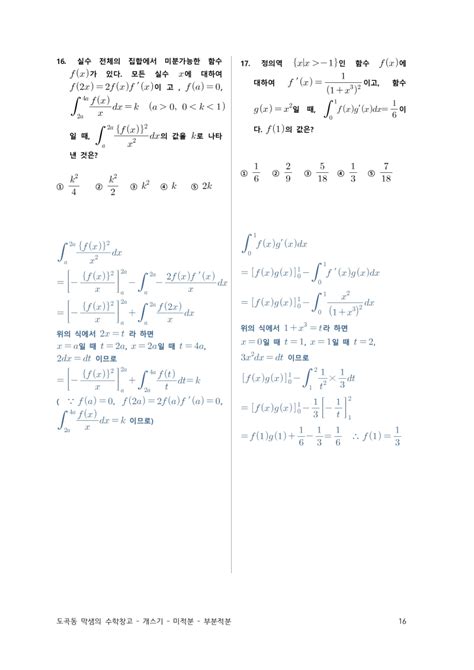 16. 실수 전체의 집합에서 미분가능한 함수
f(x)가 있다. 모든 실수 x에 대하여
f(2x)=2f(x)f′(x)이 고 , f(a)=0,
∫_{2a}^{4a} f(x)/x dx=k (a>0, 0<k<1)
일 때, ∫_{a}^{2a} {f(x)}²/x² dx의 값을 k로 나타
낸 것은?
① k²/4 ② k²/2 ③ k² ④ k ⑤ 2k
∫_{a}^{2a} {f(x)}²/x² dx
=[-{f(x)}²/x]_{a}^{2a}-∫_{a}^{2a} -2f(x)f′(x)/x dx
=[-{f(x)}²/x]_{a}^{2a}+∫_{a}^{2a} f(2x)/x dx
위의 식에서 2x=t 라 하면
x=a일 때 t=2a, x=2a일 때 t=4a,
2dx=dt 이므로
=[-{f(x)}²/x]_{a}^{2a}+∫_{2a}^{4a} f(t)/t dt=k
( ∵ f(a)=0, f(2a)=2f(a)f′(a)=0,
∫_{2a}^{4a} f(x)/x dx=k 이므로)
17. 정의역 {x|x>-1}인 함수 f(x)에
대하여 f′(x)=1/(1+x³)²이고, 함수
g(x)=x²일 때, ∫_{0}^{1} f(x)g′(x)dx=1/6이
다. f(1)의 값은?
① 1/6 ② 2/9 ③ 5/18 ④ 1/3 ⑤ 7/18
∫_{0}^{1} f(x)g′(x)dx
=[f(x)g(x)]_{0}^{1}-∫_{0}^{1} f′(x)g(x)dx
=[f(x)g(x)]_{0}^{1}-∫_{0}^{1} x²/(1+x³)² dx
위의 식에서 1+x³=t라 하면
x=0일 때 t=1, x=1일 때 t=2,
3x²dx=dt 이므로
[f(x)g(x)]_{0}^{1}-∫_{1}^{2} 1/t²×1/3 dt
=[f(x)g(x)]_{0}^{1}-1/3[-1/t]_{1}^{2}
=f(1)g(1)+1/6-1/3=1/6 ∴ f(1)=1/3
도곡동 막샘의 수학창고 - 개스기 - 미적분 - 부분적분 16